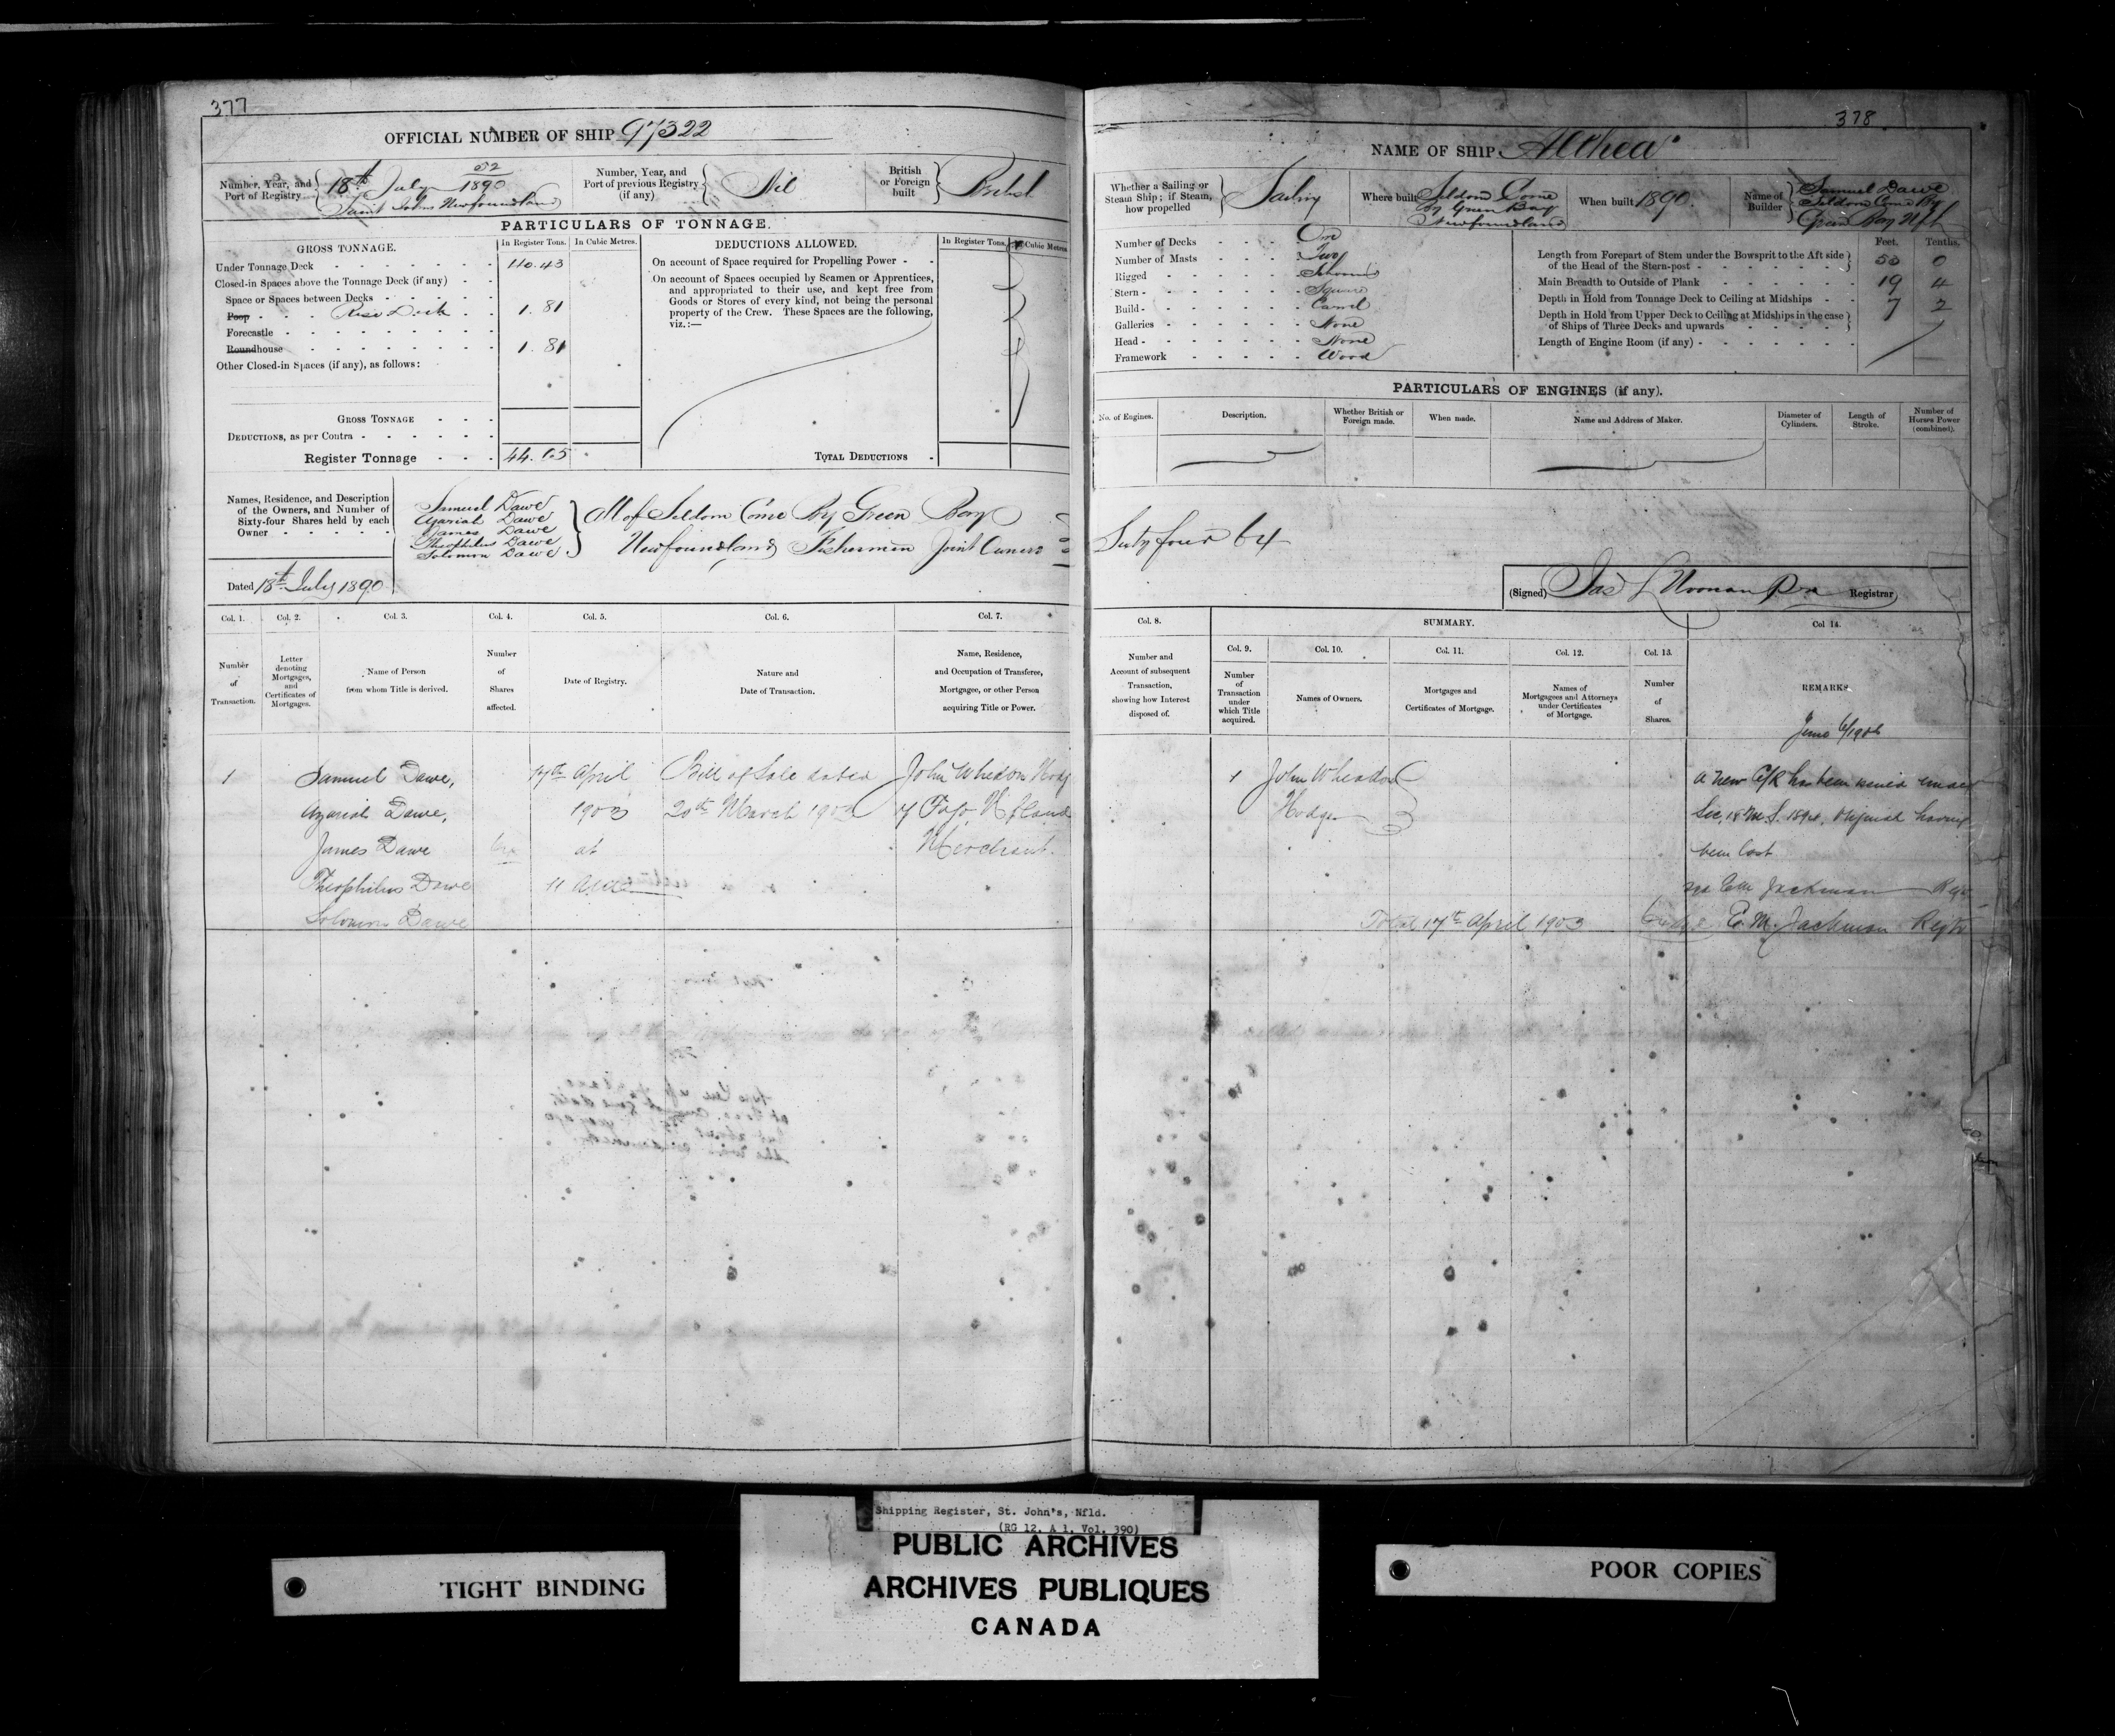 377
OFFICIAL NUMBER OF SHIP 97322
Number, Year, and Port of Registry 18th July 52/1890 Saint Johns Newfoundland
Number, Year, and Port of previous Registry (if any) Nil
British or Foreign built British
PARTICULARS OF TONNAGE.
GROSS TONNAGE. In Register Tons. In Cubic Metres.
DEDUCTIONS ALLOWED. In Register Tons. In Cubic Metres.
Under Tonnage Deck 40.43
Closed-in Spaces above the Tonnage Deck (if any)
Space or Spaces between Decks
Poop Rise Deck 1.81
Forecastle
Roundhouse 1.81
Other Closed-in Spaces (if any), as follows:
GROSS TONNAGE
DEDUCTIONS, as per Contra
Register Tonnage 44.05
On account of Space required for Propelling Power
On account of Spaces occupied by Seamen or Apprentices,
and appropriated to their use, and kept free from
Goods or Stores of every kind, not being the personal
property of the Crew. These Spaces are the following,
viz.:—
TOTAL DEDUCTIONS
Names, Residence, and Description
of the Owners, and Number of
Sixty-four Shares held by each
Owner
Samuel Dawe
Azariah Dawe
James Dawe
Theophilus Dawe
Solomon Dawe
All of Seldom Come By Green Bay
Newfoundland Fishermen Joint Owners
Dated 18th July 1890
Col. 1. Col. 2. Col. 3. Col. 4. Col. 5. Col. 6. Col. 7.
Number of Transaction.
Letter denoting Mortgages, and Certificates of Mortgages.
Name of Person from whom Title is derived.
Number of Shares affected.
Date of Registry.
Nature and Date of Transaction.
Name, Residence, and Occupation of Transferee, Mortgagee, or other Person acquiring Title or Power.
1 Samuel Dawe, 17th April Bill of Sale dated John Wheadon Hodge
Azariah Dawe, 1903 20th March 1903 of Fogo Nfland
James Dawe 64 at Merchant.
Theophilus Dawe 11 a.m.
Solomon Dawe
378
NAME OF SHIP Althea
Whether a Sailing or Steam Ship; if Steam, how propelled Sailing
Where built Seldom Come By Green Bay Newfoundland
When built 1890.
Name of Builder Samuel Dawe Seldom Come By Green Bay Nfld
Number of Decks One
Number of Masts Two
Rigged Schooner
Stern Square
Build Carvel
Galleries None
Head None
Framework Wood
Feet. Tenths.
Length from Forepart of Stem under the Bowsprit to the Aft side
of the Head of the Stern-post 50 0
Main Breadth to Outside of Plank 19 4
Depth in Hold from Tonnage Deck to Ceiling at Midships 7 2
Depth in Hold from Upper Deck to Ceiling at Midships in the case
of Ships of Three Decks and upwards
Length of Engine Room (if any)
PARTICULARS OF ENGINES (if any).
No. of Engines. Description. Whether British or Foreign made. When made. Name and Address of Maker. Diameter of Cylinders. Length of Stroke. Number of Horses Power (combined).
Sixty four 64
(Signed) Jas L Noonan Registrar
Col. 8. SUMMARY. Col 14.
Col. 9. Col. 10. Col. 11. Col. 12. Col. 13.
Number and Account of subsequent Transaction, showing how Interest disposed of.
Number of Transaction under which Title acquired.
Names of Owners.
Mortgages and Certificates of Mortgage.
Names of Mortgagees and Attorneys under Certificates of Mortgage.
Number of Shares.
REMARKS
1 John Wheadon
Hodge
a new C/R has been issued under
Sec. 18 M.S. 1894, Original having
been lost
Sgd E.M. Jackman Regr
Total 17th April 1903 E. M. Jackman Regtr
Shipping Register, St. John's, Nfld.
(RG 12, A 1, Vol. 390)
PUBLIC ARCHIVES
ARCHIVES PUBLIQUES
CANADA
TIGHT BINDING
POOR COPIES